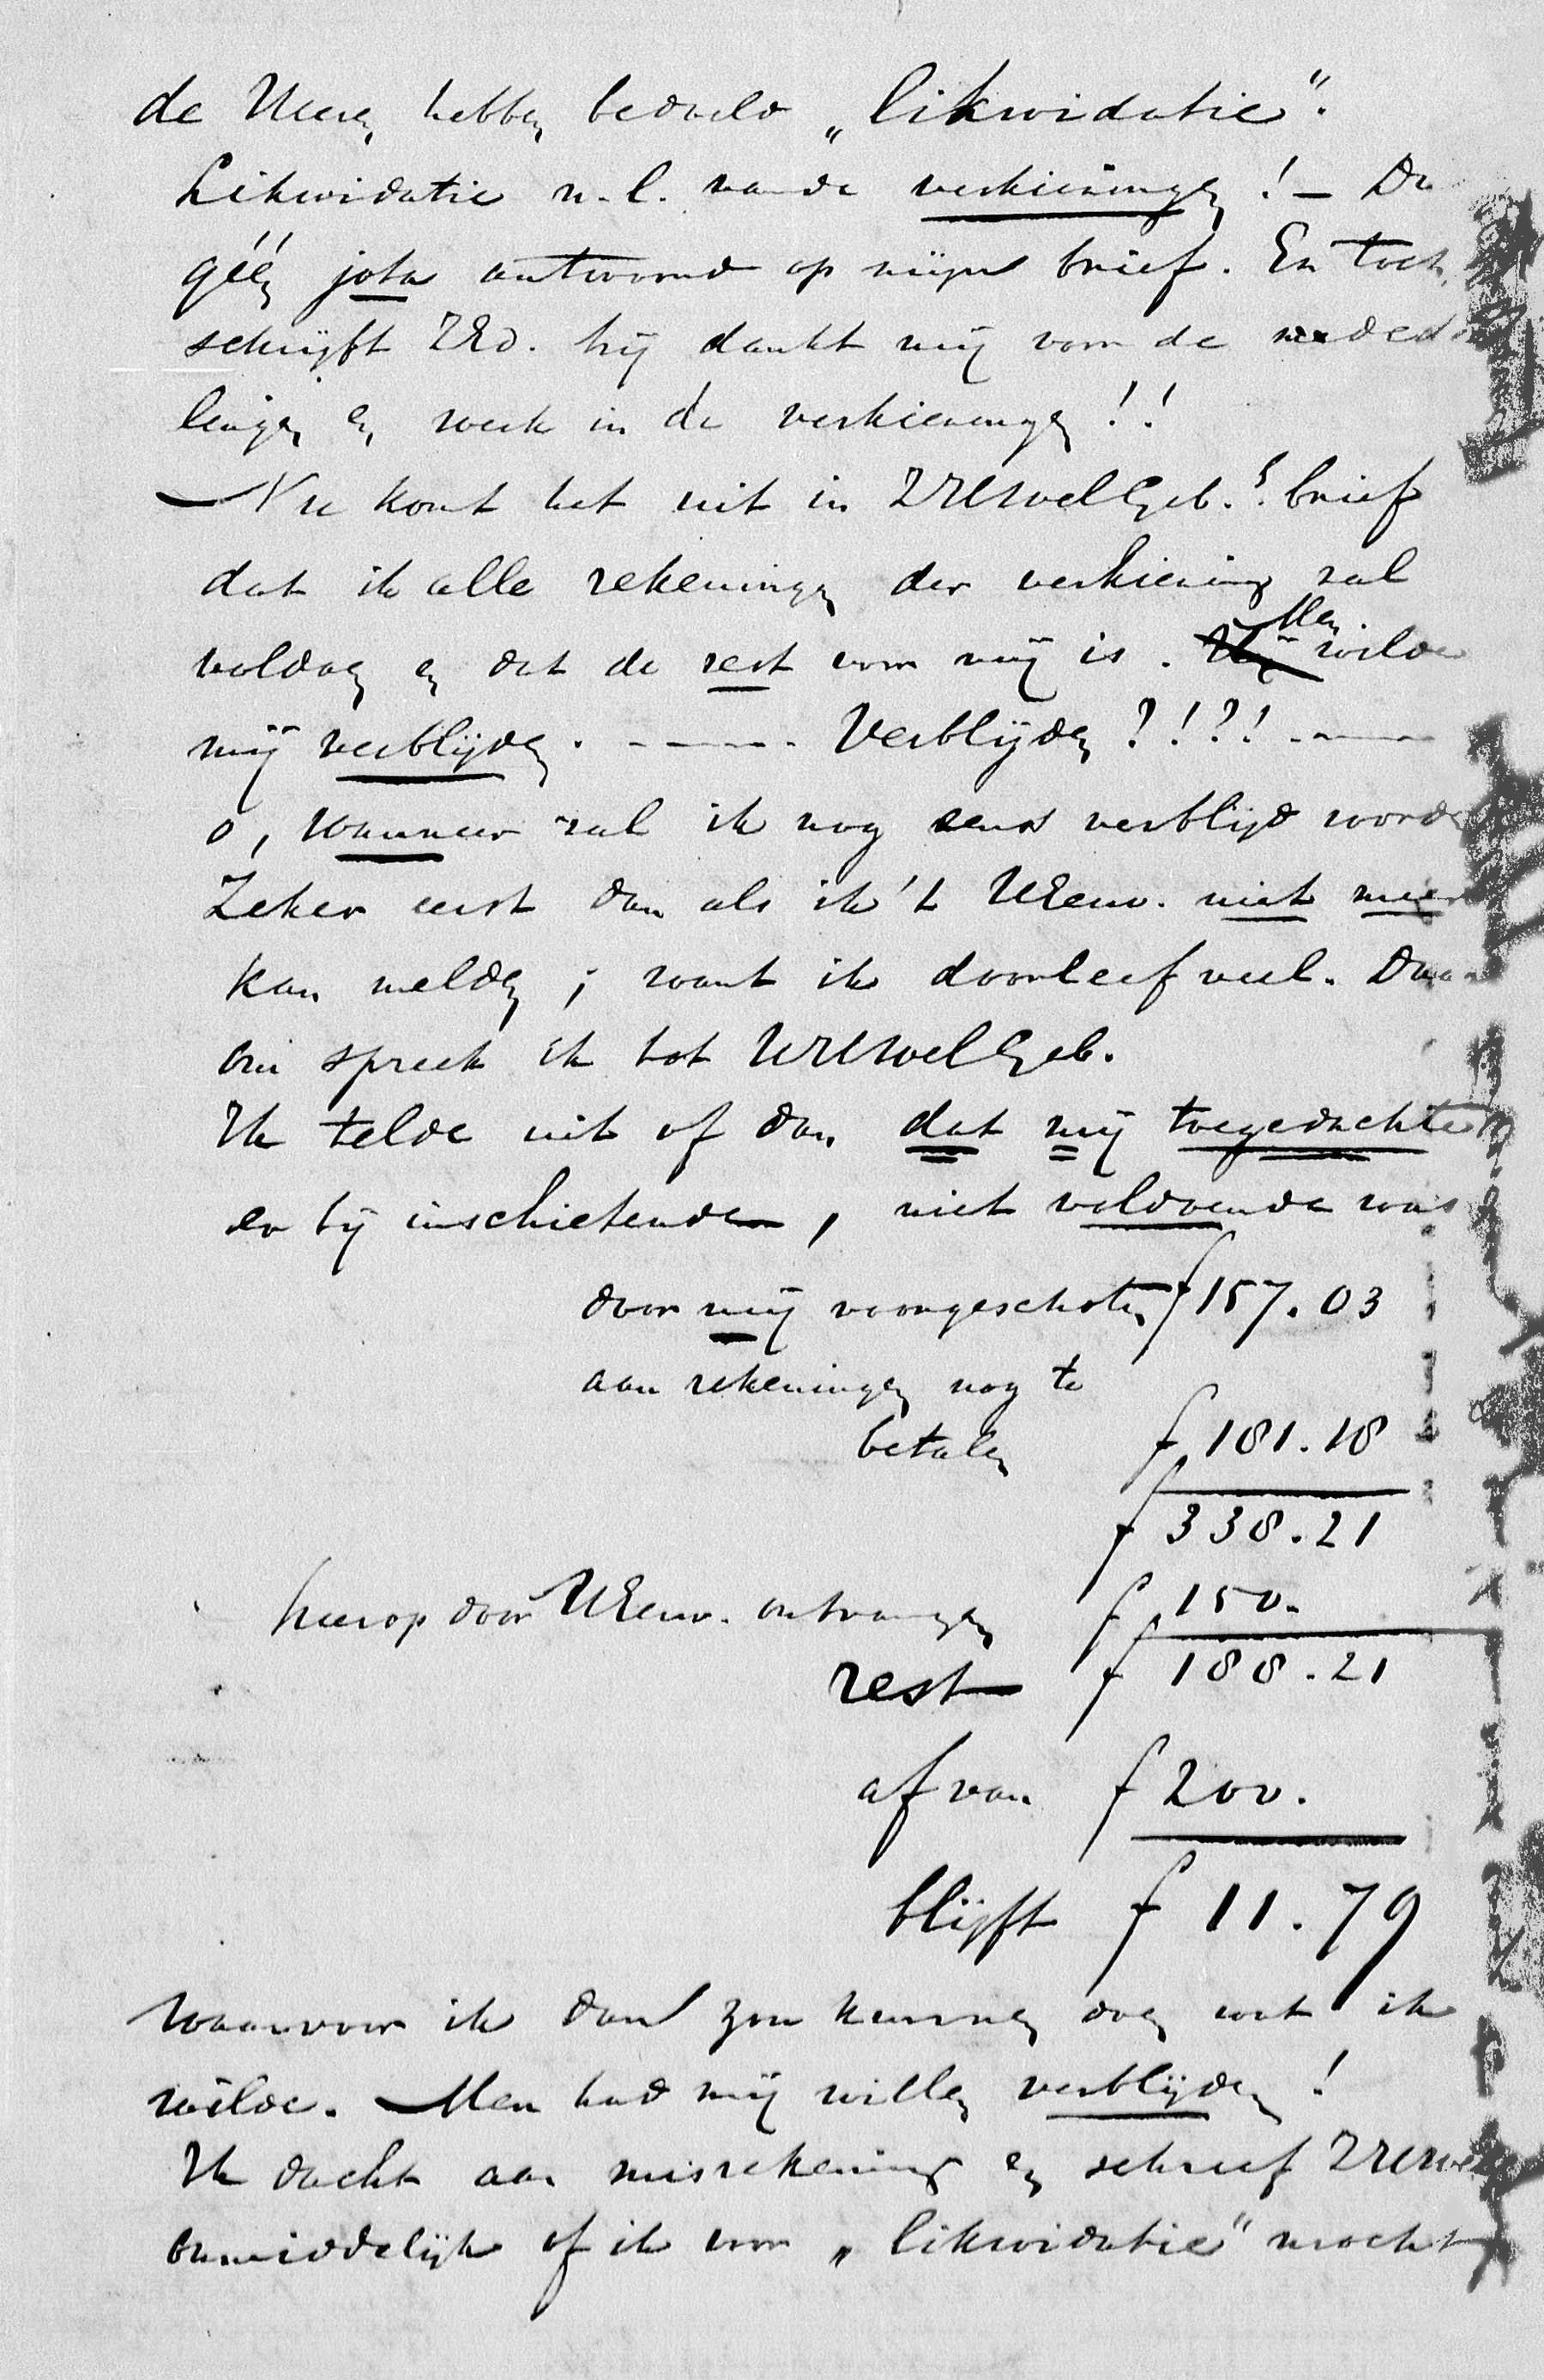 de Heeren hebben bedoeld „likwidatie".
Likwidatie n.l. van de verkiezingen! — Du
géén jota antwoord op mijn brief. En toch
schrijft ZEd. hij dankt mij voor de meded
lingen en werk in de verkiezingen!!
— Nu komt het uit in ZHEWelGeb.s brief
dat ik alle rekeningen der verkiezing zal
voldoen en dat de rest voor mij is. Men wilde
mij verblijden. ---- Verblijden?!?! ----
o, wanneer zal ik nog eens verblijd worden
Zeker eerst dan als ik 't UEerw. niet meer
kan melden; want ik doorleef veel. Daar
om spreek ik tot UHEWelGeb.
Ik telde uit of dan dat mij toegedachte
er bij inschietende, niet voldoende was
door mij voorgeschoten f 157.03
aan rekeningen nog te
betalen f 181.18
f 338.21
hierop door UEerw. ontvangen f 150.
rest f 188.21
af van f 200.
blijft f 11.79
waarvoor ik dan zou kunnen doen wat ik
wilde. — Men had mij willen verblijden!
Ik dacht aan misrekening en schreef ZHEWe
onmiddelijk of ik voor „likwidatie" mocht